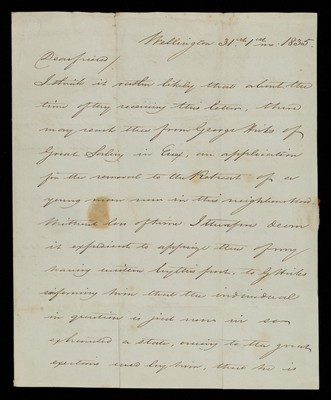 Wellington 31st 1st mo. 1835.
Dear friend/
I think is rather likely that about the
time of thy receiving this letter, there
may reach thee from George Hicks of
Great Saling in Essex, an application
for the removal to the Retreat of a
young man now in this neighborhood
Without loss of time I therefore deem
it expedient to apprize thee of my
having written by this post, to G Hicks
informing him that the individual
in question is just now in so
exhausted a state, owing to the great
exertions used by him, that he is